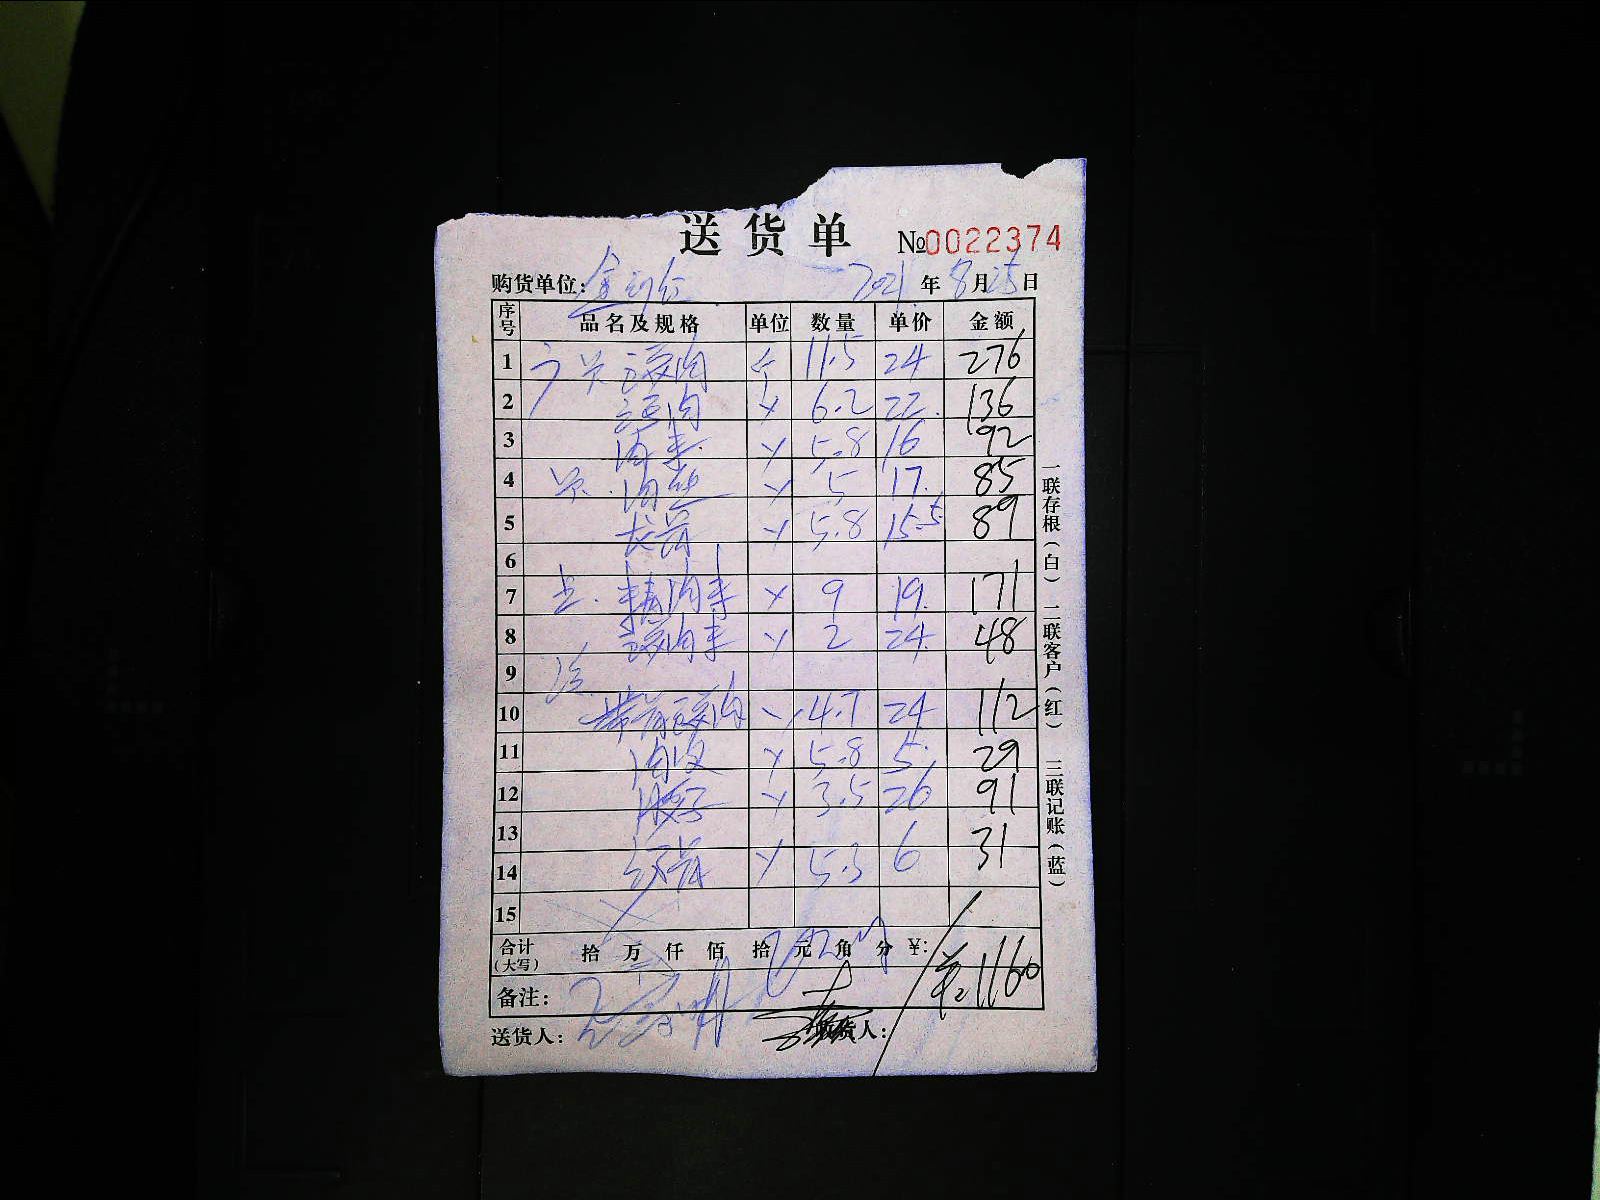 送货单 №0022374
购货单位: 2021年8月25日
序号 品名及规格 单位 数量 单价 金额
1 肉 斤 11.5 24 276
2 肉 6.2 22. 136
3 肉末 5.8 16 92
4 肉丝 5 17. 85
5 龙骨 5.8 15.5 89
6
7 精肉末 9 19. 171
8 肉末 2 24. 48
9
10 4.7 24 112
11 肉皮 5.8 5. 29
12 3.5 26 91
13 31
14 5.3 6
15
合计(大写) 拾 万 仟 佰 拾 元 角 分 ¥: 1160
备注:
送货人: 收货人:
一联存根(白) 二联客户(红) 三联记账(蓝)